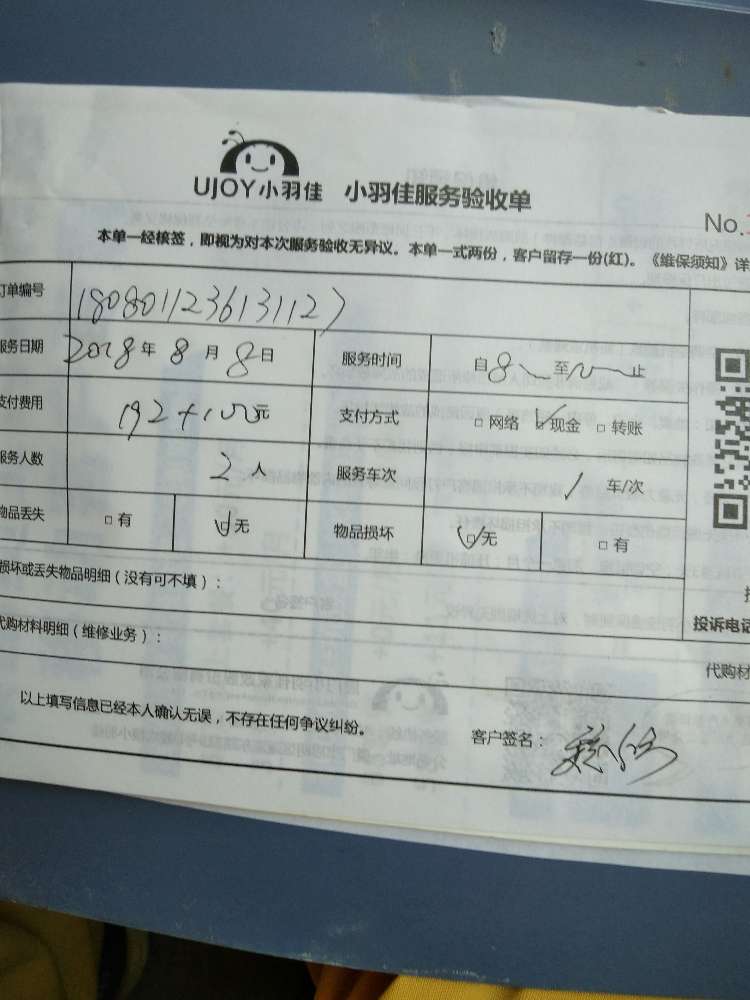 UJOY小羽佳 小羽佳服务验收单
No.
本单一经核签，即视为对本次服务验收无异议。本单一式两份，客户留存一份(红)。《维保须知》详
订单编号 1808011236131127
服务日期 2018年8月8日 服务时间 自8 至 止
支付费用 192+100元 支付方式 □网络 ☑现金 □转账
服务人数 2人 服务车次 1车/次
物品丢失 □有 ☑无 物品损坏 ☑无 □有
损坏或丢失物品明细（没有可不填）：
投诉电话
代购材料明细（维修业务）：
代购材
以上填写信息已经本人确认无误，不存在任何争议纠纷。 客户签名：